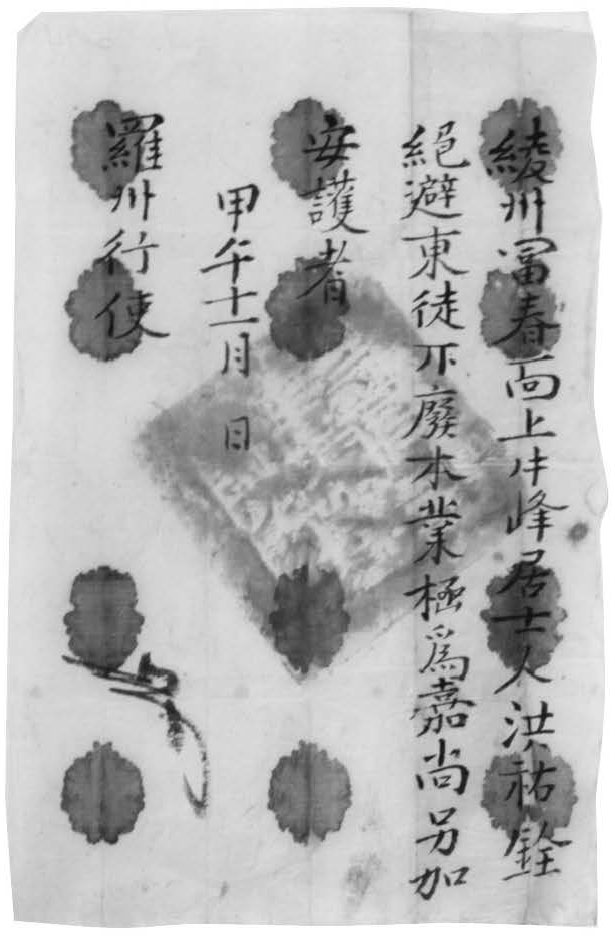 綾州富春面上牛峰居士人洪祐銓
絕避東徒不廢本業極爲嘉尙另加
安護者
甲午十一月 日
羅州行使